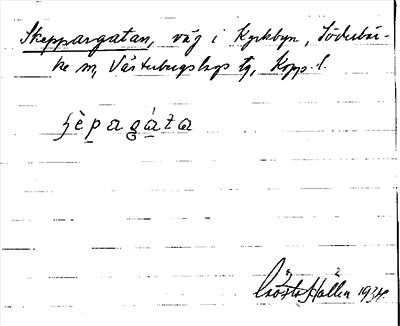 Skeppargatan, väg i Kyrkbyn, Söderbär-
ke sn, Västerbergslags tg, Kopp. l.
ʃèpagáta
Gösta Hallén 1934.